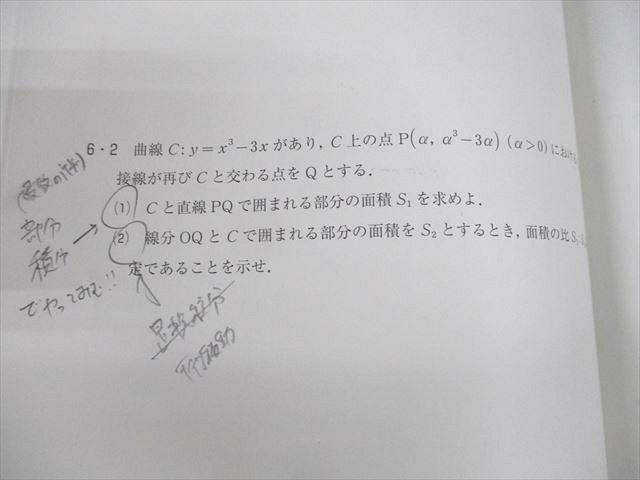 6・2 曲線 C: y = x³ − 3x があり，C 上の点 P(α, α³ − 3α) (α > 0) における
接線が再び C と交わる点を Q とする．
(1) C と直線 PQ で囲まれる部分の面積 S₁ を求めよ．
(2) 線分 OQ と C で囲まれる部分の面積を S₂ とするとき，面積の比 S
定であることを示せ．
部分
積分
でやってみむ!!